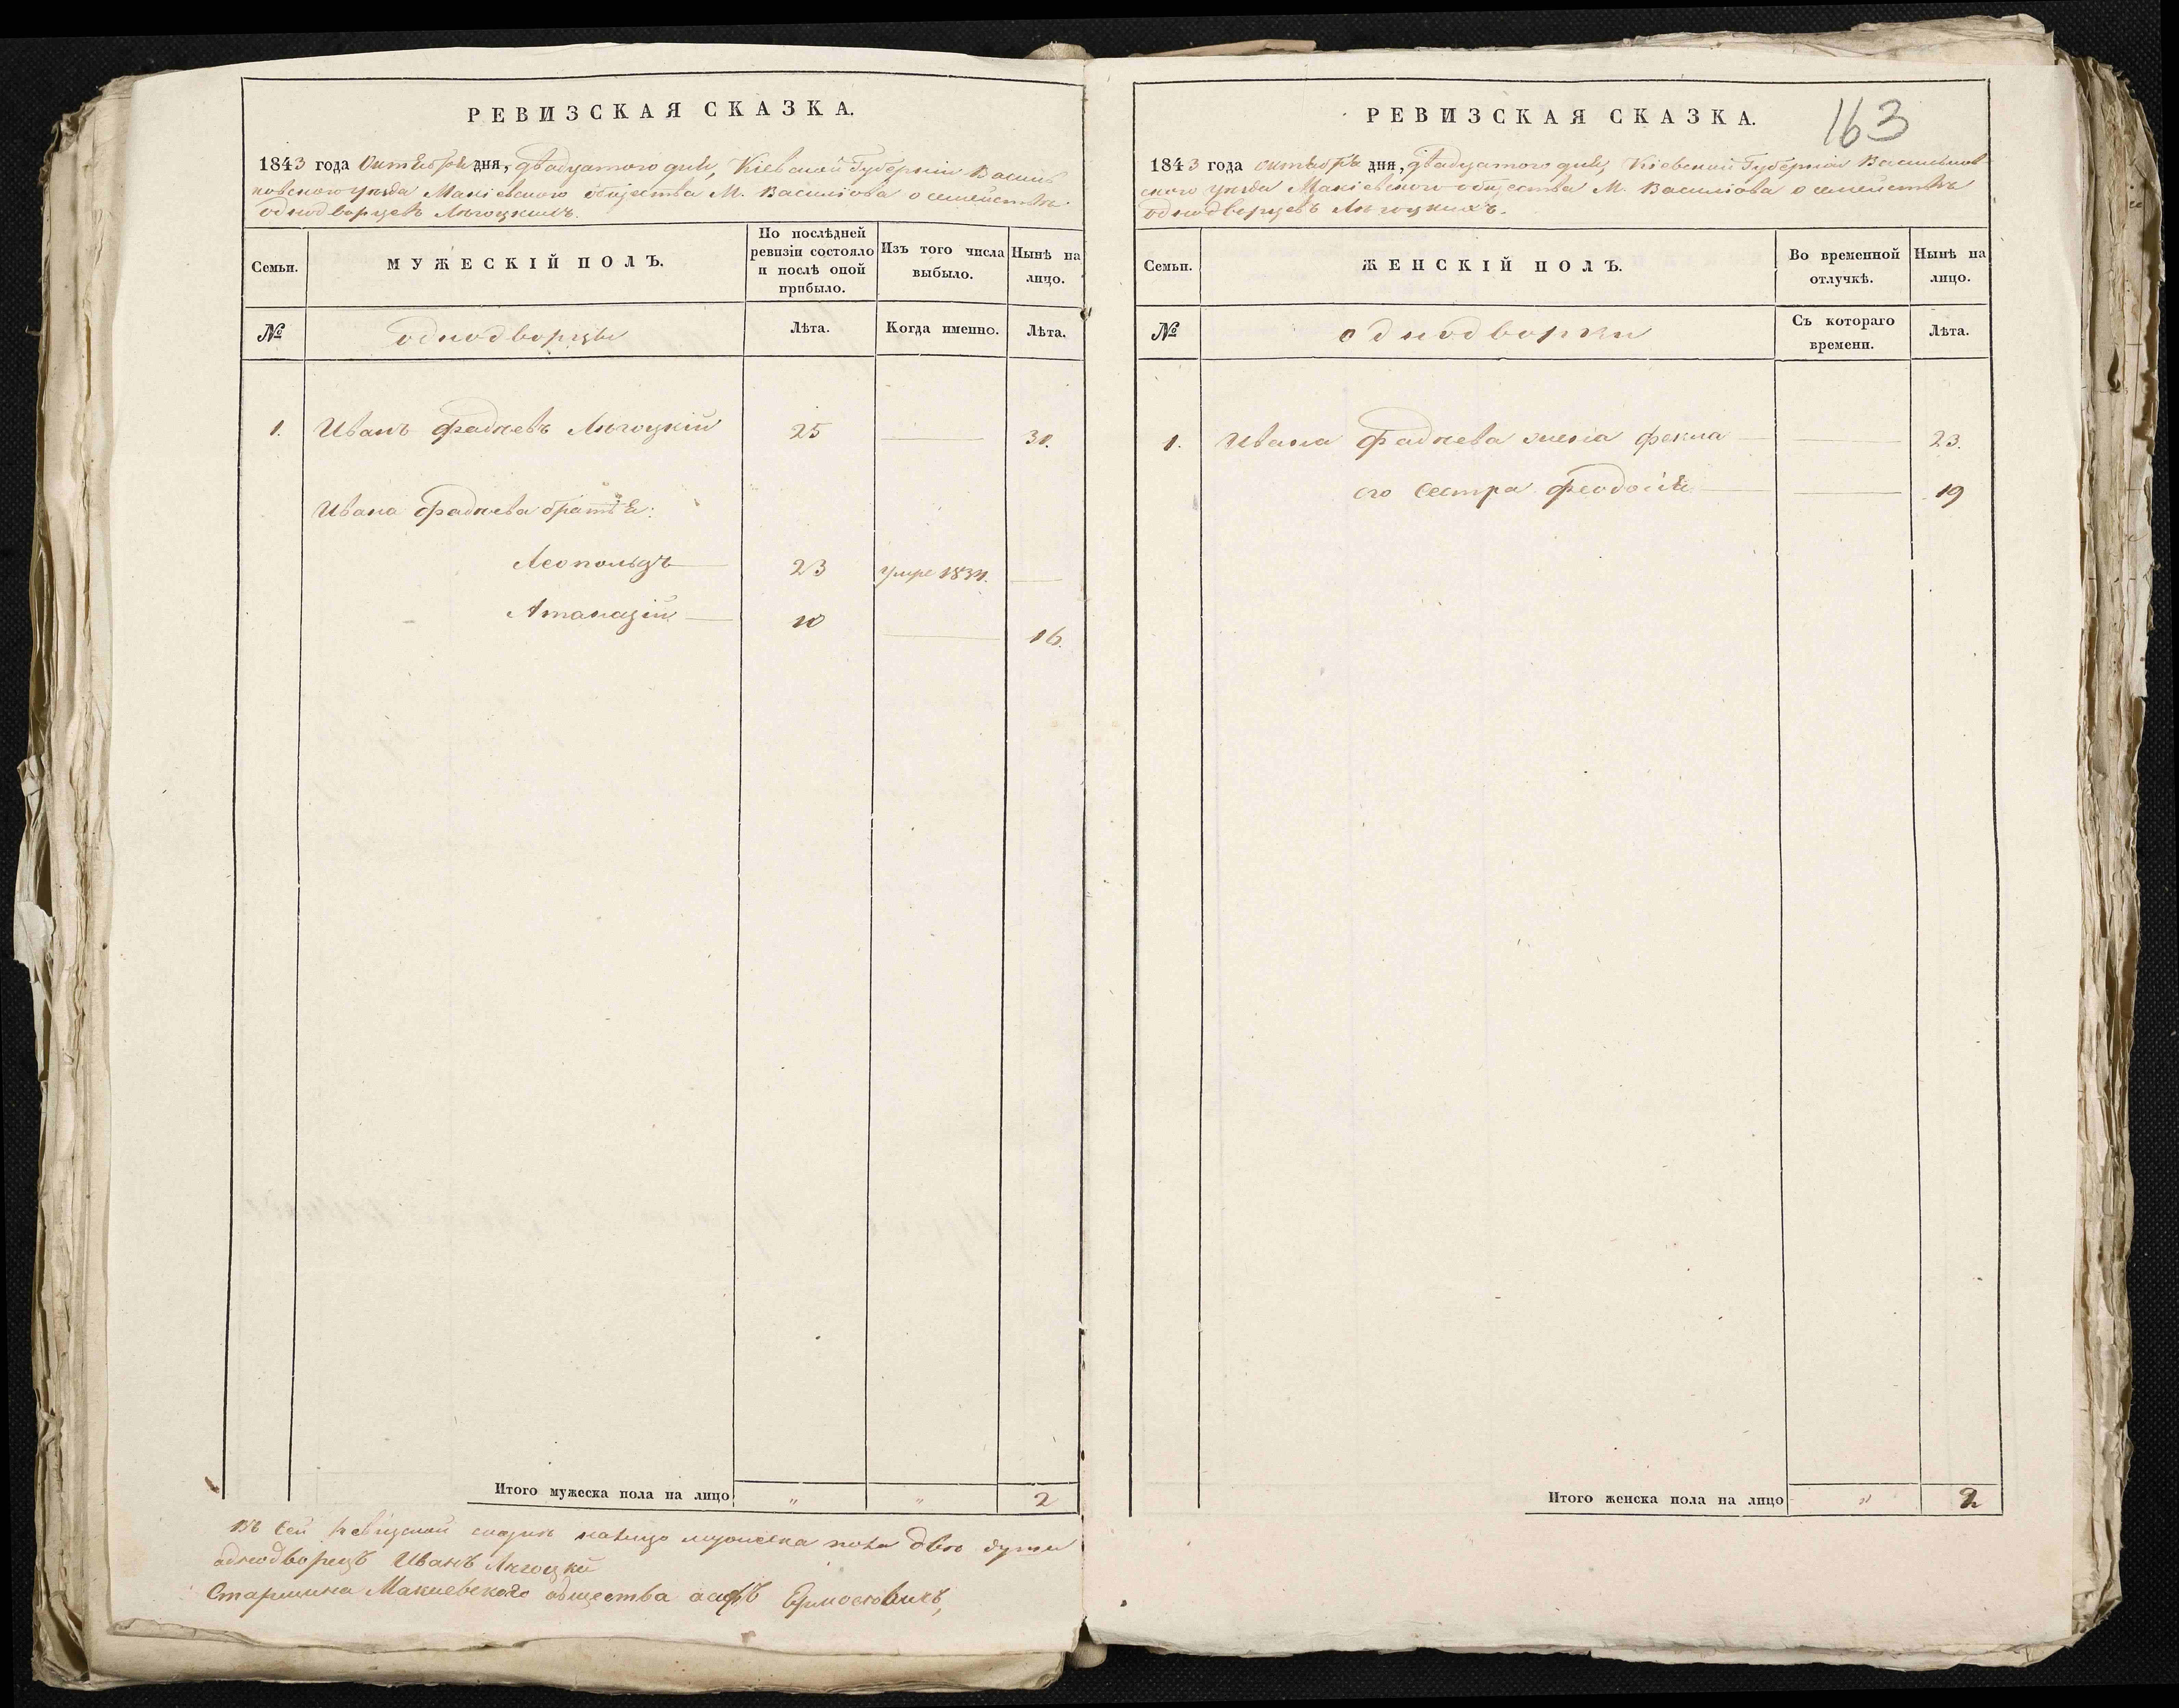 РЕВИЗСКАЯ СКАЗКА.
1843 года Октября дня, двадцатого дня, Кіевской Губерніи Василь
ковского уезда Макіевского общества М. Василіова о семействе
однодворцевъ Лѣгоцкихъ.
Семьи.
МУЖЕСКІЙ ПОЛЪ.
По послѣдней ревизіи состояло и послѣ оной прибыло.
Изъ того числа выбыло.
Нынѣ на лицо.
№
однодворцы
Лѣта.
Когда именно.
Лѣта.
1. Иванъ Фадѣевъ Лѣгоцкій 25 — 31.
Ивана Фадѣева братія:
Леопольдъ — 23 умре 1834. —
Атанацій — 10 — 16.
Итого мужеска пола на лицо " " 2
Въ сей ревизской сказкѣ налицо мужеска пола двѣ души
однодворецъ Иванъ Лѣгоцкій
Старшина Макиевского общества
163
РЕВИЗСКАЯ СКАЗКА.
1843 года октября дня, двадцатого дня, Кіевской Губерніи Васильков
ского уезда Макіевского общества М. Василіова о семействе
однодворцевъ Лѣгоцкихъ.
Семьи.
ЖЕНСКІЙ ПОЛЪ.
Во временной отлучкѣ.
Нынѣ на лицо.
№
однодворки
Съ котораго времени.
Лѣта.
1. Ивана Фадѣева жена Фекла — — 23.
его сестра Феодосія — — 19
Итого женска пола на лицо " 2